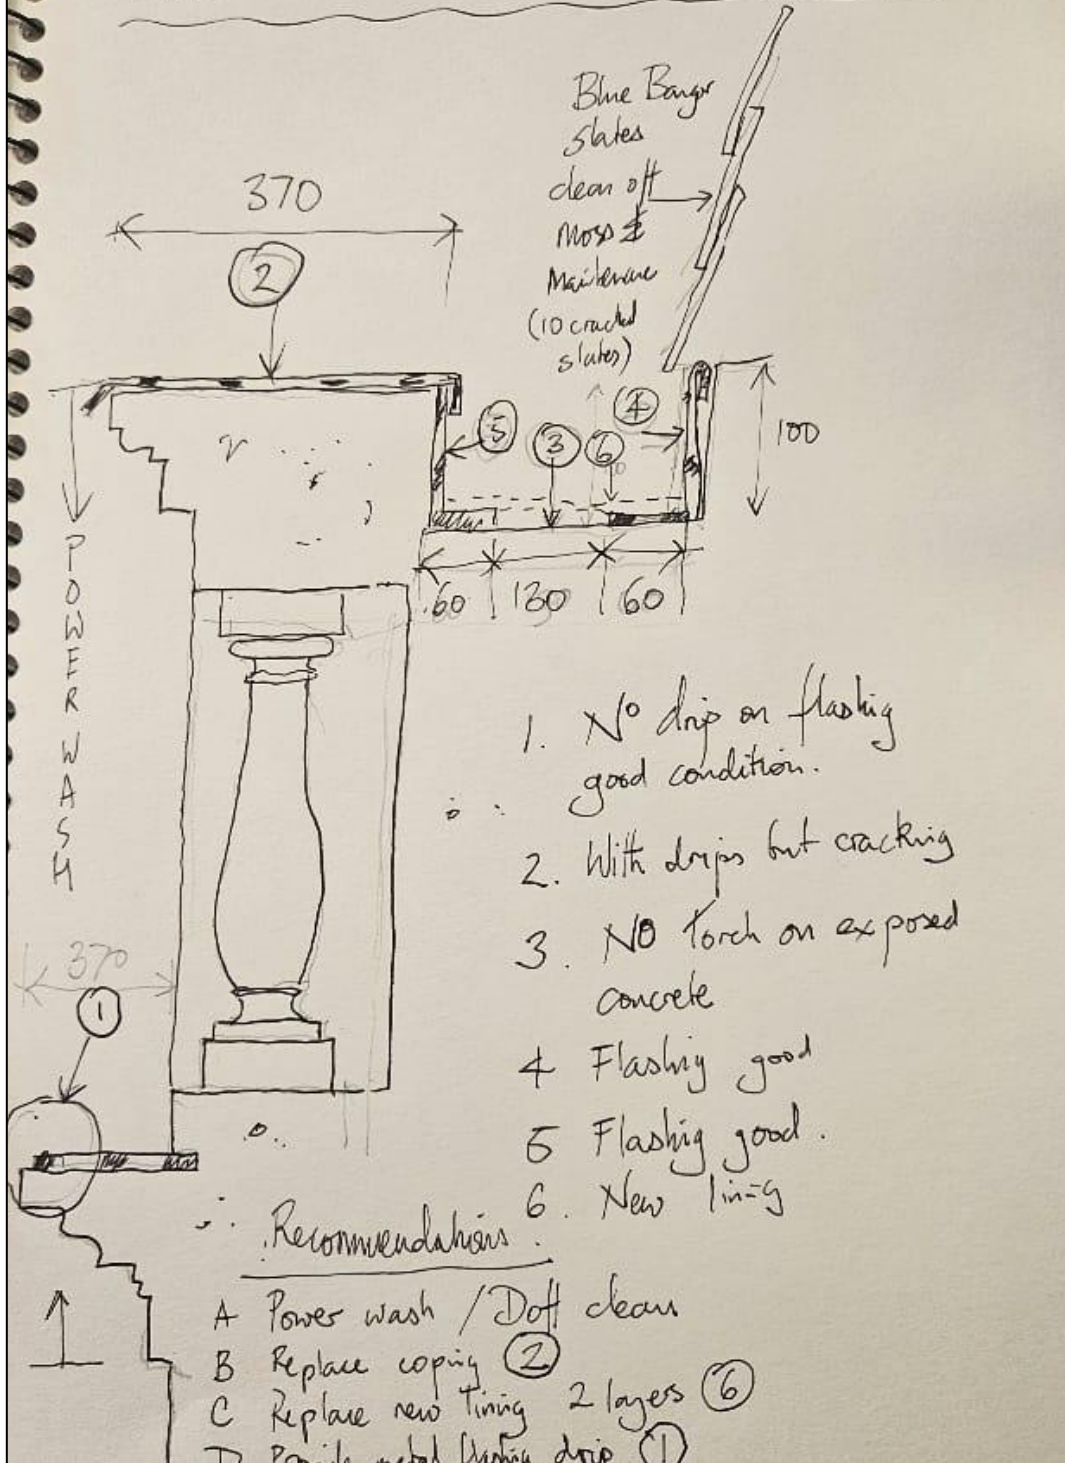 Blue Bangor
slates
clean off
moss &
Maintenance
(10 cracked
slates)
370
2
4
5
3
6
100
60
130
60
POWER WASH
370
1
1. No drip on flashig
good condition.
2. With drips but cracking
3. NO Torch on exposed
concrete
4 Flashig good
5 Flashig good.
6. New lining
Recommendations
A Power wash / Doff clean
B Replace coping 2
C Replace new lining 2 layers 6
D Provide metal flashing drip 1